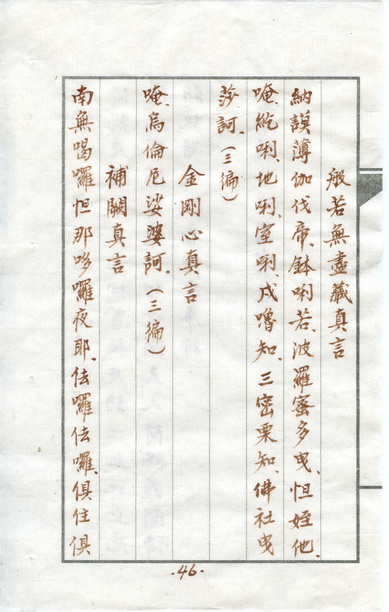 般若無盡藏真言
納謨薄伽伐帝、鉢唎若、波羅蜜多曳、怛姪他、
唵、紇唎、地唎、室唎、戍嚕知、三蜜栗知、佛社曳
莎訶、（三徧）
金剛心真言
唵、烏倫尼娑婆訶、（三徧）
補闕真言
南無喝囉怛那哆囉夜耶、佉囉佉囉、俱住俱
·46·